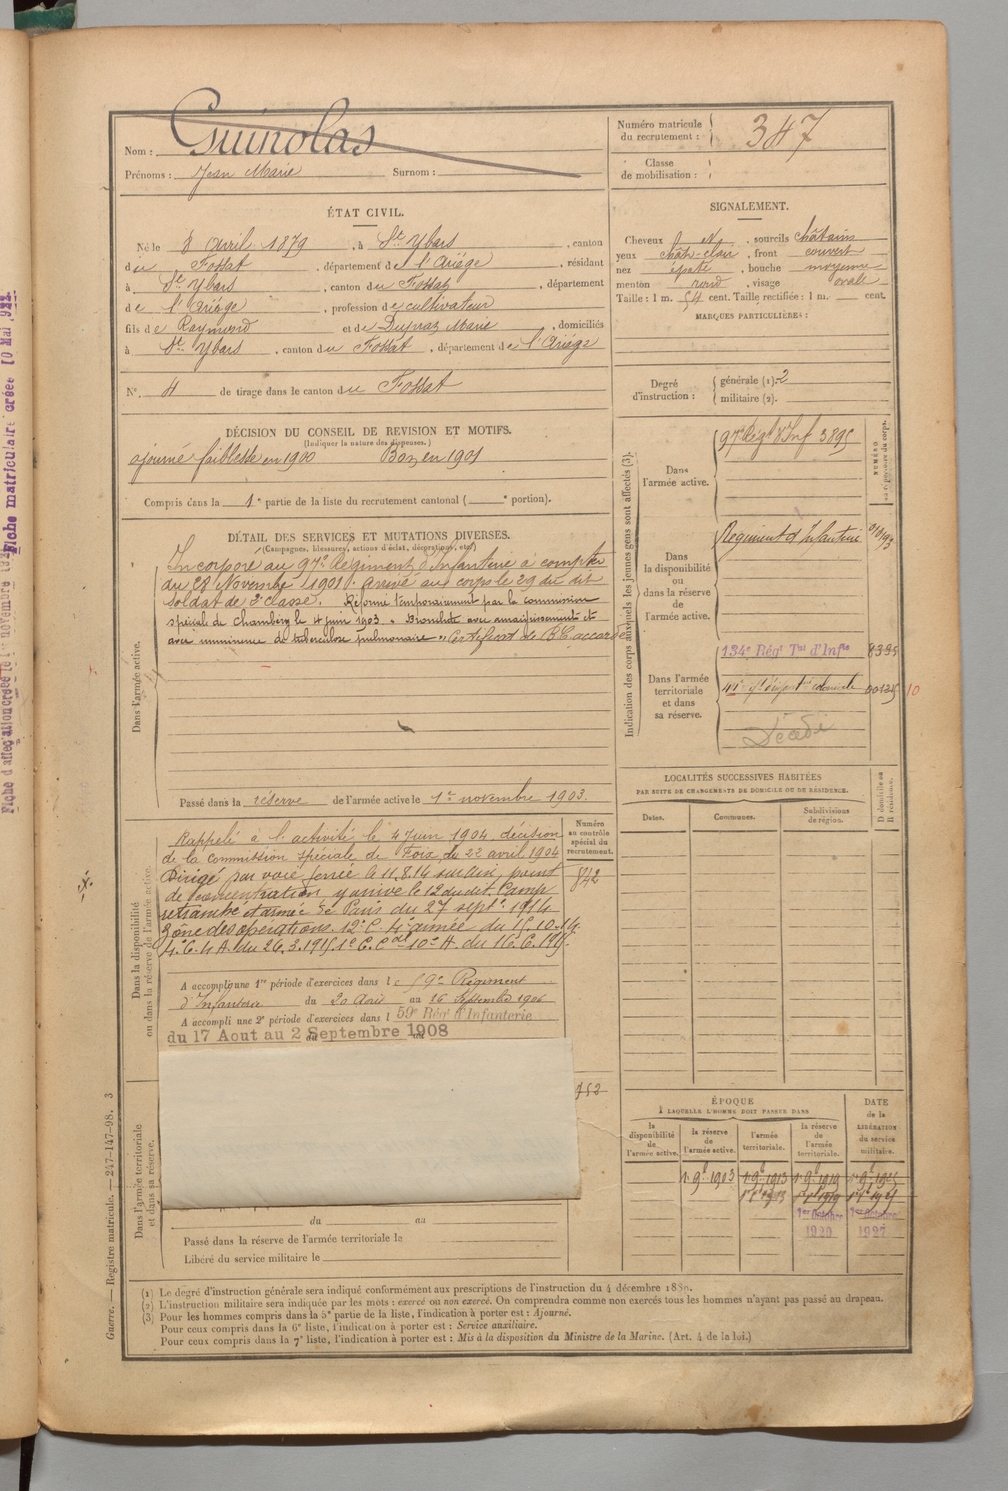 Nom : Guinolas
Prénoms : Jean Marie Surnom :
Numéro matricule du recrutement : 347
Classe de mobilisation :
ÉTAT CIVIL.
Né le 8 Avril 1879, à St Ybars, canton
du Fossat, département de l'Ariège, résidant
à St Ybars, canton du Fossat, département
de l'Ariège, profession de cultivateur
fils de Raymond et de Marie, domiciliés
à St Ybars, canton du Fossat, département de l'Ariège
N° 4 de tirage dans le canton du Fossat
SIGNALEMENT.
Cheveux et sourcils châtains
yeux chât-clair, front couvert
nez épaté, bouche moyenne
menton rond, visage ovale
Taille : 1 m. 54 cent. Taille rectifiée : 1 m. cent.
MARQUES PARTICULIÈRES :
Degré d'instruction : générale (1). 2
militaire (2).
DÉCISION DU CONSEIL DE REVISION ET MOTIFS.
(Indiquer la nature des dispenses.)
ajourné faiblesse en 1900 Bon en 1901
Compris dans la 1e partie de la liste du recrutement cantonal ( e portion).
DÉTAIL DES SERVICES ET MUTATIONS DIVERSES.
(Campagnes, blessures, actions d'éclat, décorations, etc.)
Dans l'armée active.
Incorporé au 97e Régiment d'Infanterie à compter
du 28 Novembre 1901. Arrivé au corps le 29 du dit
soldat de 2e classe. Réformé temporairement par la commission
spéciale de Chambéry le 4 juin 1903. Bronchite avec amaigrissement et
avec imminence de tuberculose pulmonaire. Certificat de BC accordé
Passé dans la réserve de l'armée active le 1er novembre 1903.
Dans la disponibilité ou dans la réserve de l'armée active.
Rappelé à l'activité le 4 Juin 1904, décision
de la commission spéciale de Foix du 22 avril 1904
Dirigé par voie ferrée le 11.8.14 sur point
de concentration y arrive le 12 du dit. Camp
retranché et armée de Paris du 27 septe 1914
Zône des opérations. 12e C. 4e armée du 15.10.14.
4e C. 4 A. du 26.3.1915 1e C. Cal 10e A. du 16.6.1915.
A accompli une 1re période d'exercices dans le 59e Régiment
d'Infanterie du 20 Août au 16 Septembre 1906
A accompli une 2e période d'exercices dans l 59e Régt d'Infanterie
du 17 Aout au 2 Septembre 1908
Numéro au contrôle spécial du recrutement.
842
952
Dans l'armée territoriale et dans sa réserve.
du au
Passé dans la réserve de l'armée territoriale le
Libéré du service militaire le
Indication des corps auxquels les jeunes gens sont affectés (3).
NUMÉRO au répertoire du corps.
Dans l'armée active.
97e Régt d'Inf 3895
Dans la disponibilité ou dans la réserve de l'armée active.
Régiment d'Infanterie
Dans l'armée territoriale et dans sa réserve.
134e Régt Tal d'Infie 8395
Décédé
10
LOCALITÉS SUCCESSIVES HABITÉES
PAR SUITE DE CHANGEMENTS DE DOMICILE OU DE RÉSIDENCE.
Dates. Communes. Subdivisions de région. D domicile ou R résidence.
ÉPOQUE
À LAQUELLE L'HOMME DOIT PASSER DANS
la disponibilité de l'armée active. la réserve de l'armée active. l'armée territoriale. la réserve de l'armée territoriale.
DATE de la LIBÉRATION du service militaire.
1. 9bre 1903 1. 9bre 1913 1. 9bre 1919
1er Octobre 1920 1er Octobre 1927
(1) Le degré d'instruction générale sera indiqué conformément aux prescriptions de l'instruction du 4 décembre 1889.
(2) L'instruction militaire sera indiquée par les mots : exercé ou non exercé. On comprendra comme non exercés tous les hommes n'ayant pas passé au drapeau.
(3) Pour les hommes compris dans la 5e partie de la liste, l'indication à porter est : Ajourné.
Pour ceux compris dans la 6e liste, l'indication à porter est : Service auxiliaire.
Pour ceux compris dans la 7e liste, l'indication à porter est : Mis à la disposition du Ministre de la Marine. (Art. 4 de la loi.)
Guerre. — Registre matricule. — 247-147-98. 3
Fiche matriculaire créée 10 Mai 1922
Fiche d'affectation créée le 1er novembre